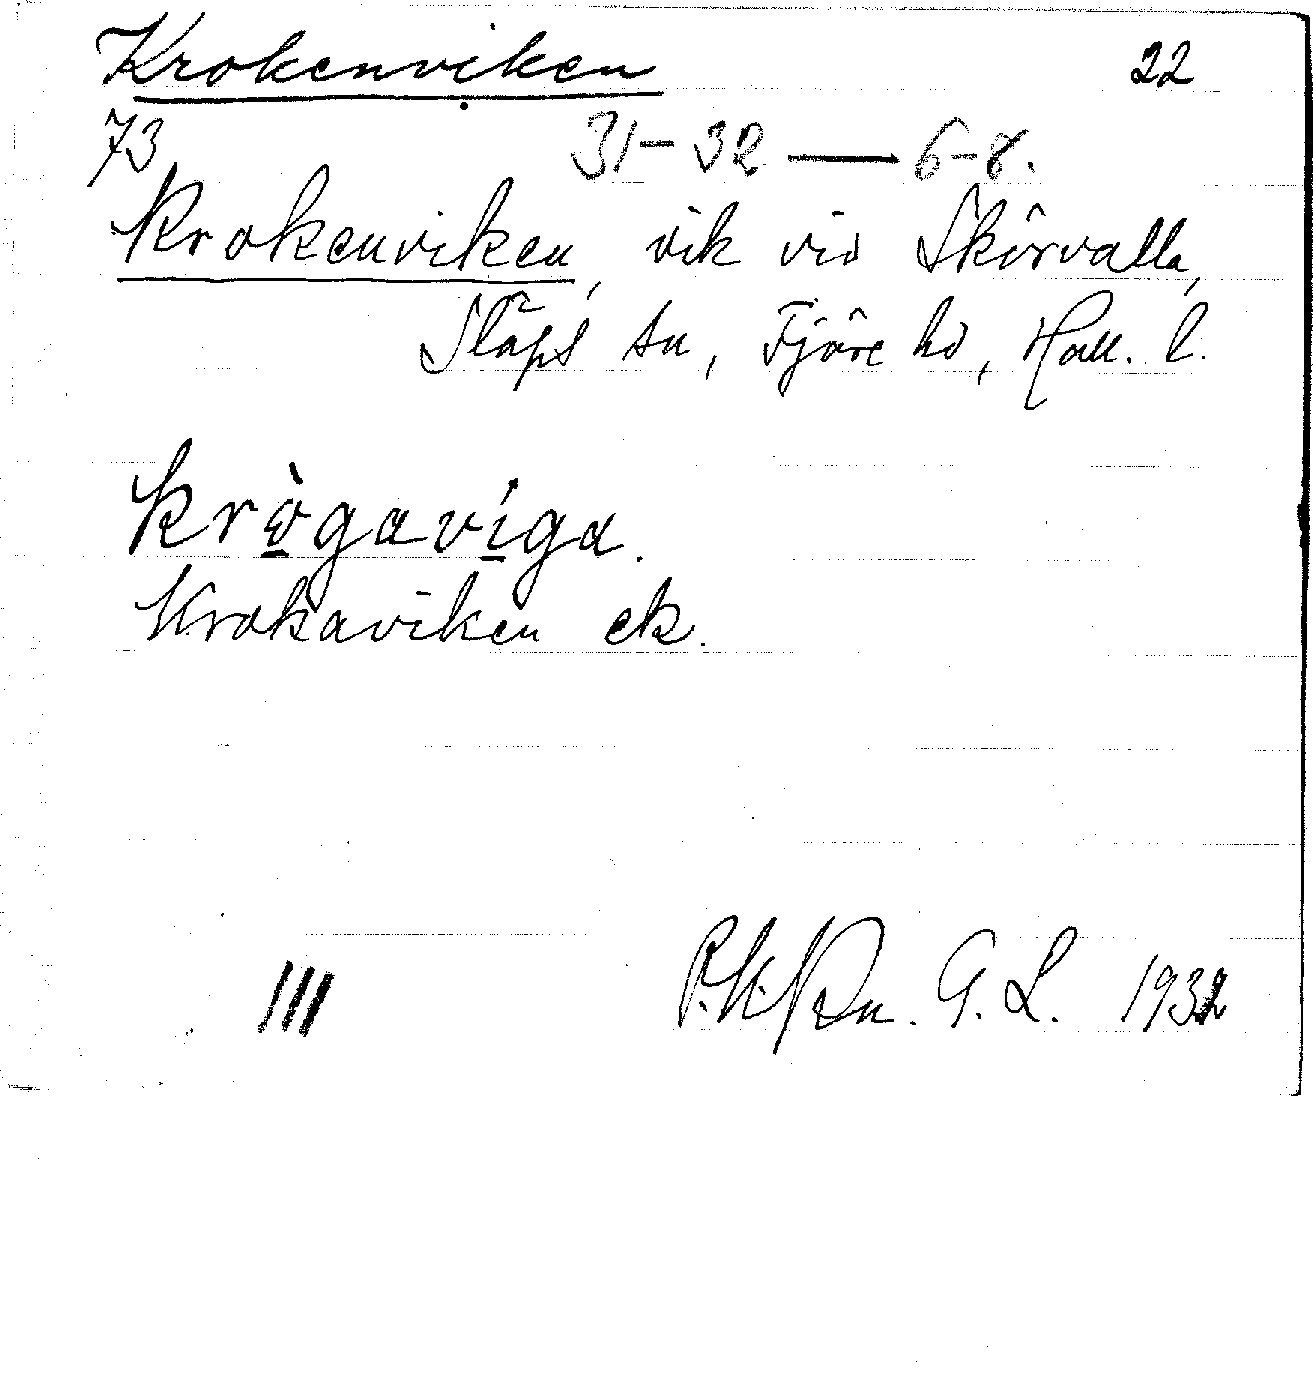 Krokenviken 22
73 31-32 — 6-8.
Krokenviken, vik vid Skörvalla,
Släps sn, Fjäre hd, Hall. l.
krògavíga.
Krokaviken ek.
III G. L. 1932